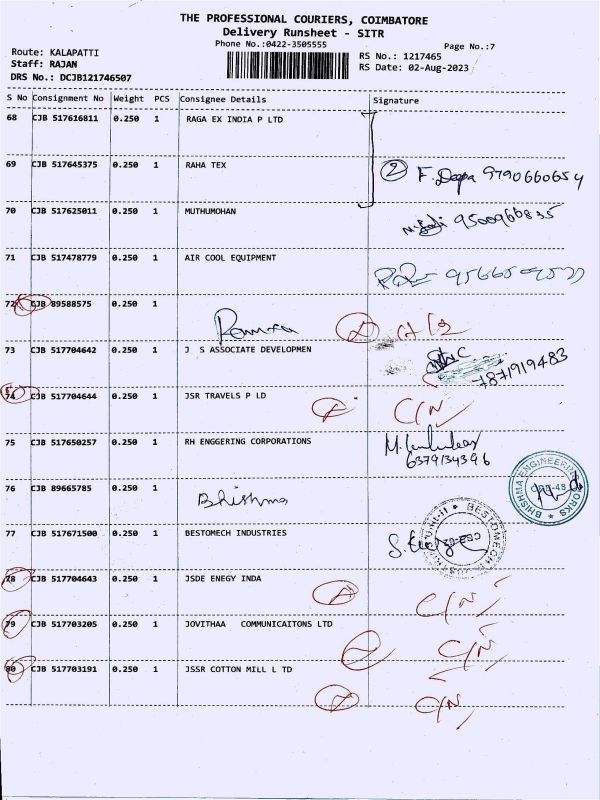 THE PROFESSIONAL COURIERS, COIMBATORE
Delivery Runsheet - SITR
Phone No.:0422-3505555
Page No.:7
Route: KALAPATTI
RS No.: 1217465
Staff: RAJAN
RS Date: 02-Aug-2023
DRS No.: DCJB121746507
S No Consignment No Weight PCS Consignee Details Signature
68 CJB 517616811 0.250 1 RAGA EX INDIA P LTD
69 CJB 517645375 0.250 1 RAHA TEX
2 F. Deepa 9790660654
70 CJB 517625011 0.250 1 MUTHUMOHAN
9500966835
71 CJB 517478779 0.250 1 AIR COOL EQUIPMENT
72 CJB 89588575 0.250 1
73 CJB 517704642 0.250 1 J S ASSOCIATE DEVELOPMEN
7871919483
74 CJB 517704644 0.250 1 JSR TRAVELS P LD
C/N
75 CJB 517650257 0.250 1 RH ENGGERING CORPORATIONS
6379134396
76 CJB 89665785 0.250 1
Bhishma
BHISHMA ENGINEERING WORKS
77 CJB 517671500 0.250 1 BESTOMECH INDUSTRIES
78 CJB 517704643 0.250 1 JSDE ENEGY INDA
C/N
79 CJB 517703205 0.250 1 JOVITHAA COMMUNICAITONS LTD
C/N
80 CJB 517703191 0.250 1 JSSR COTTON MILL L TD
C/N